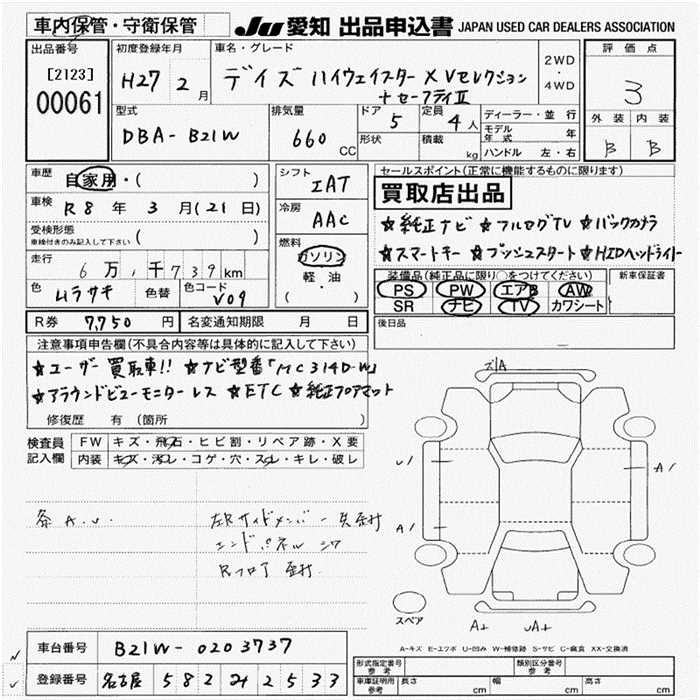 車内保管・守衛保管
JU 愛知 出品申込書 JAPAN USED CAR DEALERS ASSOCIATION
出品番号
[2123]
00061
初度登録年月
H27 2月
車名・グレード
デイズ ハイウェイスター X Vセレクション
+セーフティⅡ
2WD
・
4WD
評価点
3
外装 内装
B B
型式
DBA-B21W
排気量
660 CC
ドア 5
形状
定員 4人
積載 kg
ディーラー・並行
モデル年式 年
ハンドル 左・右
車歴 自家用・( )
車検 R8年 3月(21日)
受検形態 ( )
車検付きのみ記入して下さい
走行 6万,千739km
色 ムラサキ 色替 色コード V09
シフト
IAT
冷房
AAC
燃料
ガソリン
軽・油
( )
セールスポイント(正常に機能するものに限ります)
買取店出品
☆純正ナビ ☆フルセグTV ☆バックカメラ
☆スマートキー ☆プッシュスタート ☆HIDヘッドライト
装備品(純正品に限り○をつけてください)
PS PW エアB AW
SR ナビ TV カワシート
新車保証書
後日品
R券 7,750円 名変通知期限 月 日
注意事項申告欄(不具合内容等は具体的に記入して下さい)
☆ユーザー買取車!! ☆ナビ型番「MC314D-W」
☆アラウンドビューモニターレス ☆ETC ☆純正フロアマット
修復歴 有 (箇所 )
検査員
記入欄
FW キズ・飛石・ヒビ割・リペア跡・X要
内装 キズ・汚レ・コゲ・穴・スレ・キレ・破レ
左Rサイドメンバー
エンドパネル
Rフロア
A/
A/
スペア
A+
A-キズ E-エクボ U-凹み W-補修跡 S-サビ C-腐食 XX-交換済
車台番号 B21W-0203737
登録番号 名古屋 582 2533
形式指定番号
参考
類別区分番号
参考
車庫証明用
参考
長さ cm 幅 cm 高さ cm